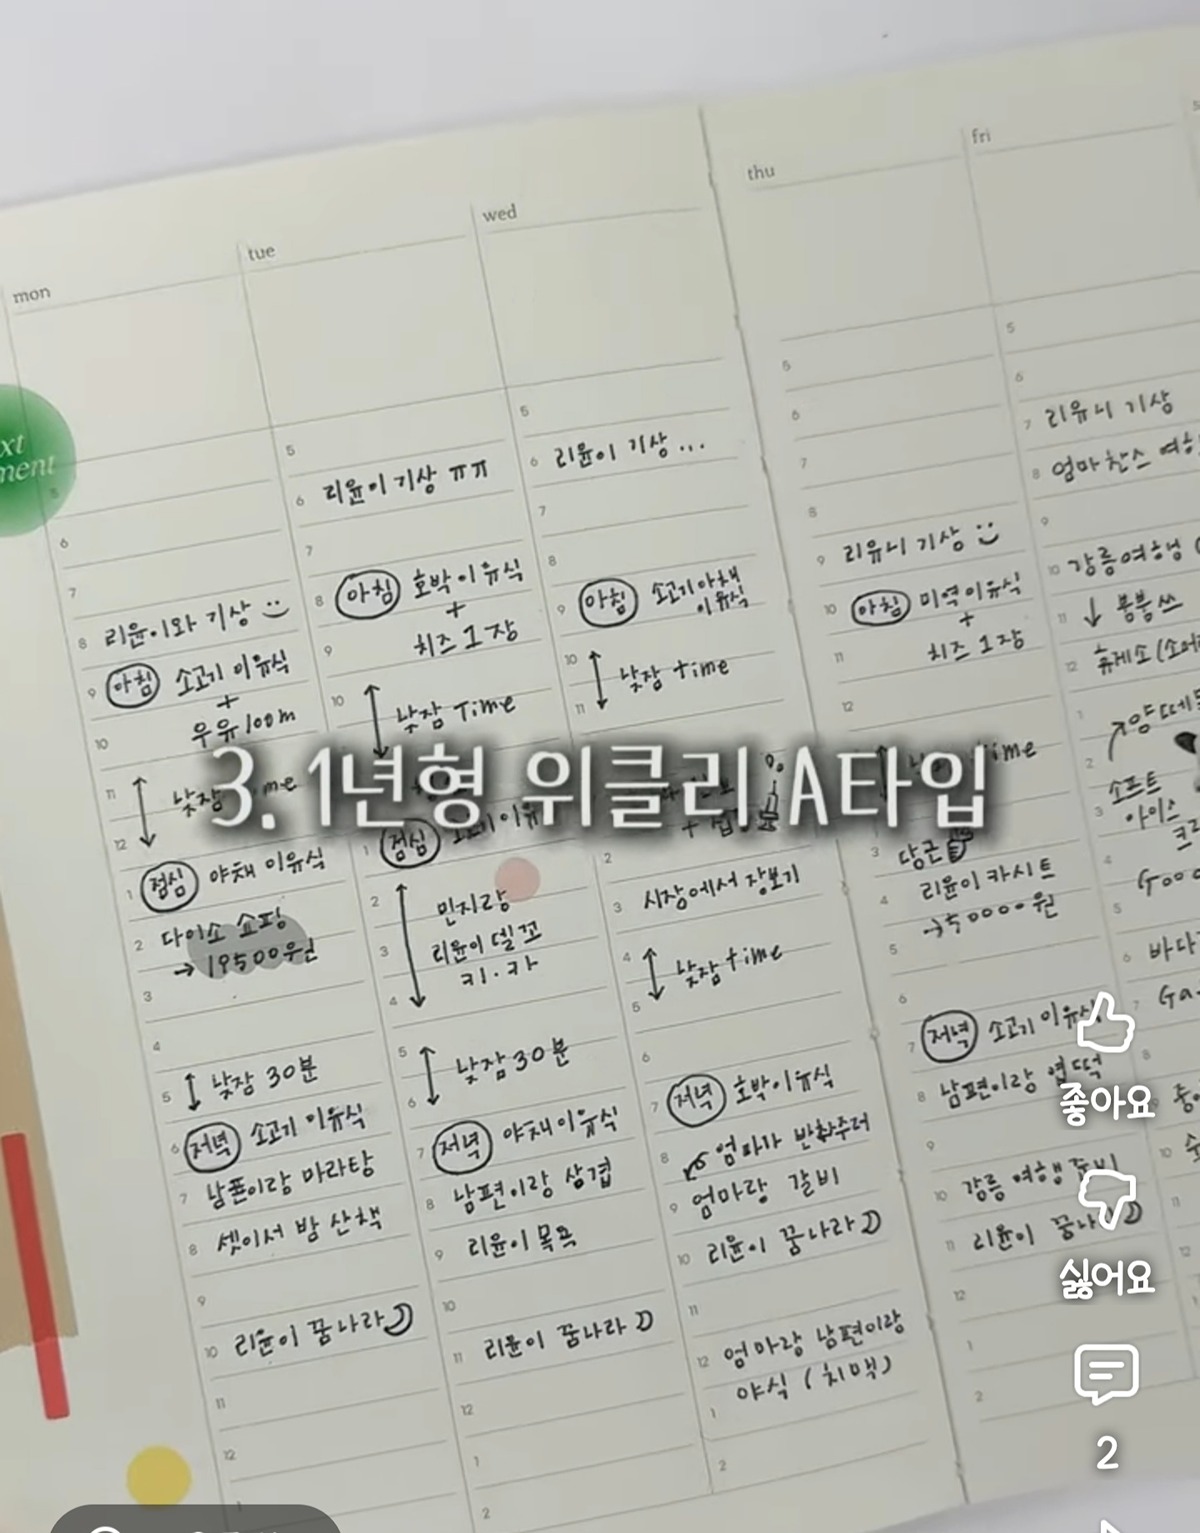 mon
xt
ment
5
6
7
8 리윤이와 기상
9 아침 소고기 이유식
+
10 우유 100m
11 낮잠
12
1 점심 야채 이유식
2 다이소 쇼핑
→ 19500원
3
4
5 낮잠 30분
6 저녁 소고기 이유식
7 남편이랑 마라탕
8 셋이서 밤 산책
9
10 리윤이 꿈나라
11
12
1
tue
5
6 리윤이 기상 ㅠㅠ
7
8 아침 호박 이유식
+
9 치즈 1장
10 낮잠 Time
1 점심 소고기 이유
2 민지랑
3 리윤이 델꼬
4 키·카
5 낮잠 30분
6
7 저녁 야채 이유식
8 남편이랑 삼겹
9 리윤이 목욕
10
11 리윤이 꿈나라
12
1
2
wed
5
6 리윤이 기상...
7
8
9 아침 소고기야채
이유식
10 낮잠 time
11
2
3 시장에서 장보기
4 낮잠 time
5
6
7 저녁 호박이유식
8 엄마가 반찬주러
9 엄마랑 갈비
10 리윤이 꿈나라
11
12 엄마랑 남편이랑
1 야식 (치맥)
2
thu
5
6
7
8
9 리유니 기상
10 아침 미역이유식
+
11 치즈 1장
12
time
3 당근
4 리윤이 카시트
→ 50000원
5
6
7 저녁 소고기 이유식
8 남편이랑 엽떡
9
10 강릉 여행 준비
11 리윤이 꿈나라
12
1
2
fri
5
6
7 리유니 기상
8 엄마 찬스
9
10 강릉여행
11 ↓ 붕붕쓰
12 휴게소
1
2 소프트
3 아이스
4
5
6
7
8
9
10
11
12
3. 1년형 위클리 A타입
좋아요
싫어요
2